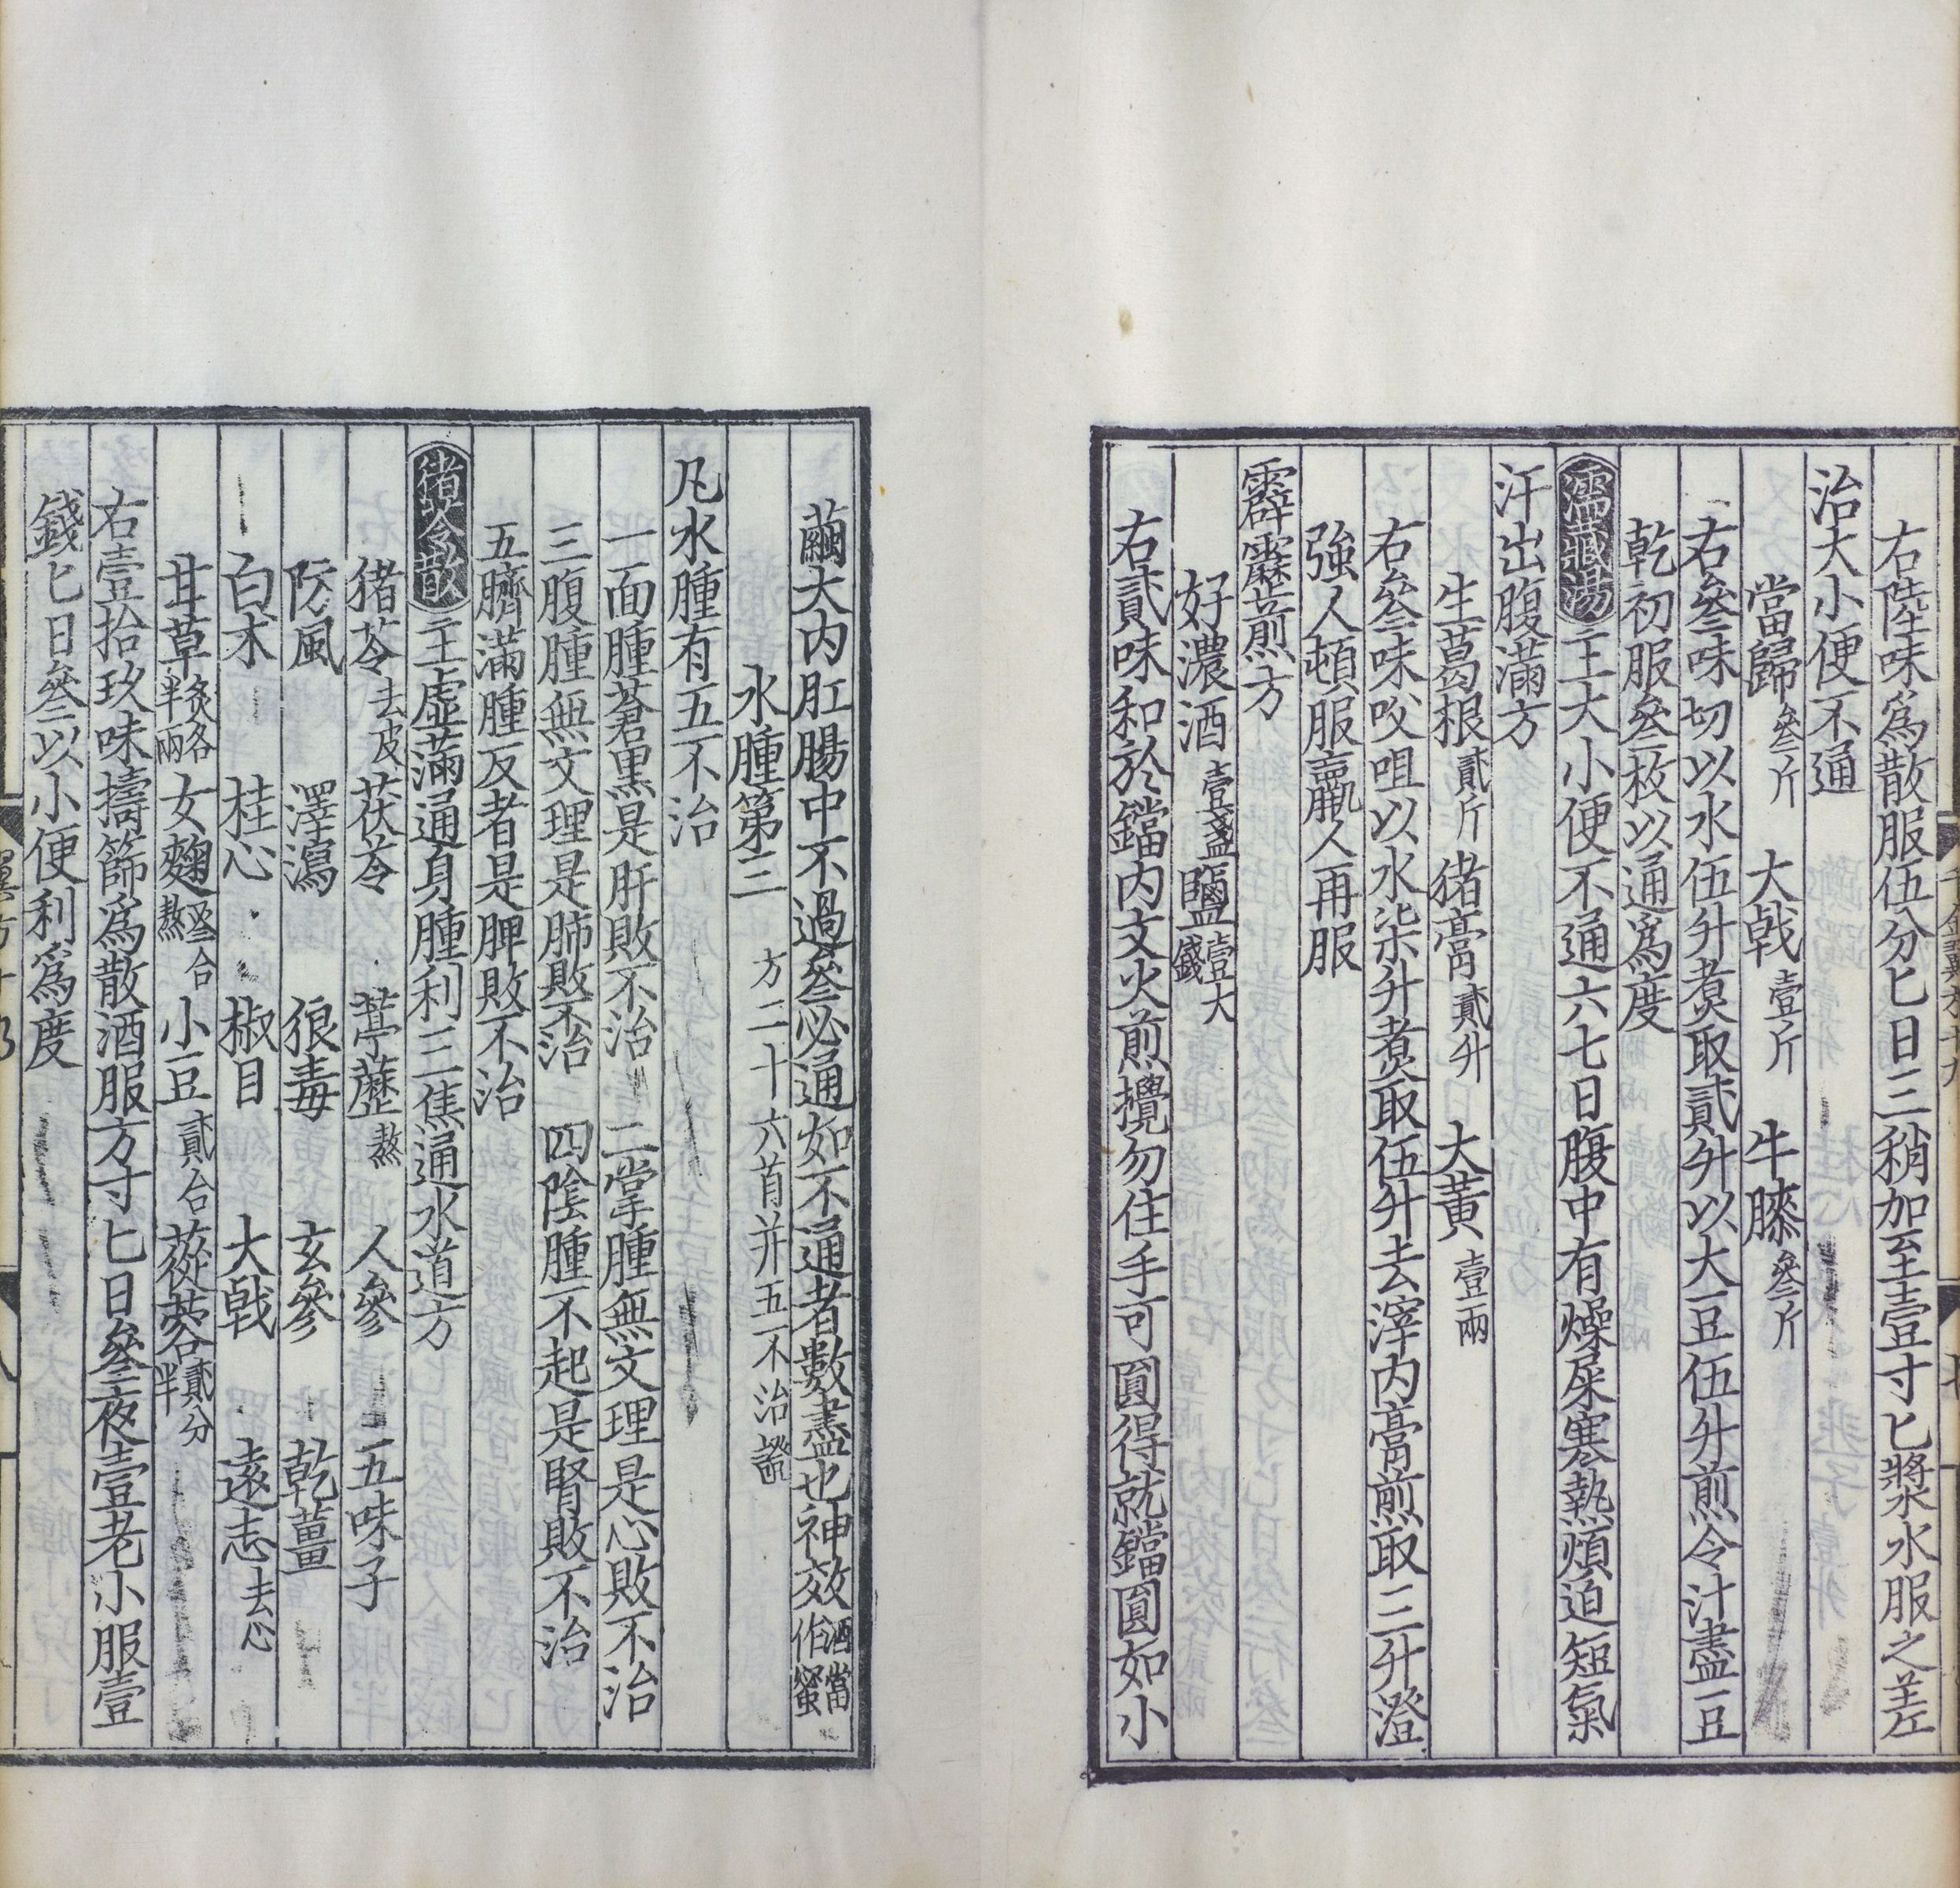 右陸味爲散服伍分匕日三稍加至壹寸匕漿水服之差
治大小便不通
當歸叄斤　大戟壹斤　牛膝叄斤
右叄味切以水伍升煑取貳升以大豆伍升煎令汁盡豆
乾初服叄枚以通爲度
濡藏湯主大小便不通六七日腹中有燥屎寒熱煩迫短氣
汗出腹滿方
生葛根貳斤　猪膏貳升　大黃壹兩
右叄味㕮咀以水柒升煑取伍升去滓内膏煎取三升澄
強人頓服羸人再服
霹靂煎方
好濃酒壹盞　鹽壹大錢
右貳味和於鐺内文火煎攪勿住手可圓得就鐺圓如小
繭大内肛腸中不過叄必通如不通者數盡也神效酒當作蜜
水腫第三　方二十六首并五不治證
凡水腫有五不治
一面腫蒼黑是肝敗不治　二掌腫無文理是心敗不治
三腹腫無文理是肺敗不治　四陰腫不起是腎敗不治
五臍滿腫反者是脾敗不治
猪苓散主虛滿通身腫利三焦通水道方
猪苓去皮　茯苓　葶藶熬　人參　五味子
防風　澤瀉　狼毒　玄參　乾薑
白朮　桂心　椒目　大戟　遠志去心
甘草炙各半兩　女麴叄合熬　小豆貳合　蓯蓉貳分半
右壹拾玖味擣篩爲散酒服方寸匕日叄夜壹老小服壹
錢匕日叄以小便利爲度